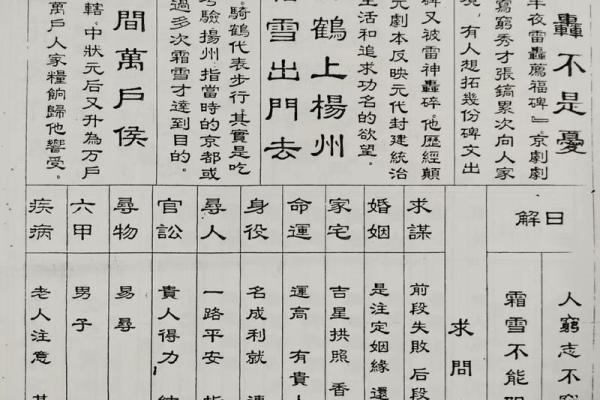 轟不是憂
半夜雷轟薦福碑』京劇劇
寫窮秀才張鎬累次向人家
境，有人想拓幾份碑文出
碑又被雷神轟碎。他歷經顛
元劇本反映元代封建統治
生活和追求功名的欲望。
鶴上楊州
雪出門去
騎鶴代表步行。其實是吃
考驗揚州，指當時的京都或
過多次霜雪才達到目的。
間萬戶侯
轄。中狀元后又升為萬戶
萬戶人家糧餉歸他響受。
日解
人窮志不窮
霜雪不能
求問
求謀 前段失敗 后段
婚姻 是注定姻緣 還
家宅 吉星拱照 香
命運 運高 有貴人
身役 名成利就
尋人 一路平安
官訟 貴人得力
尋物 易尋
六甲 男子
疾病 老人注意